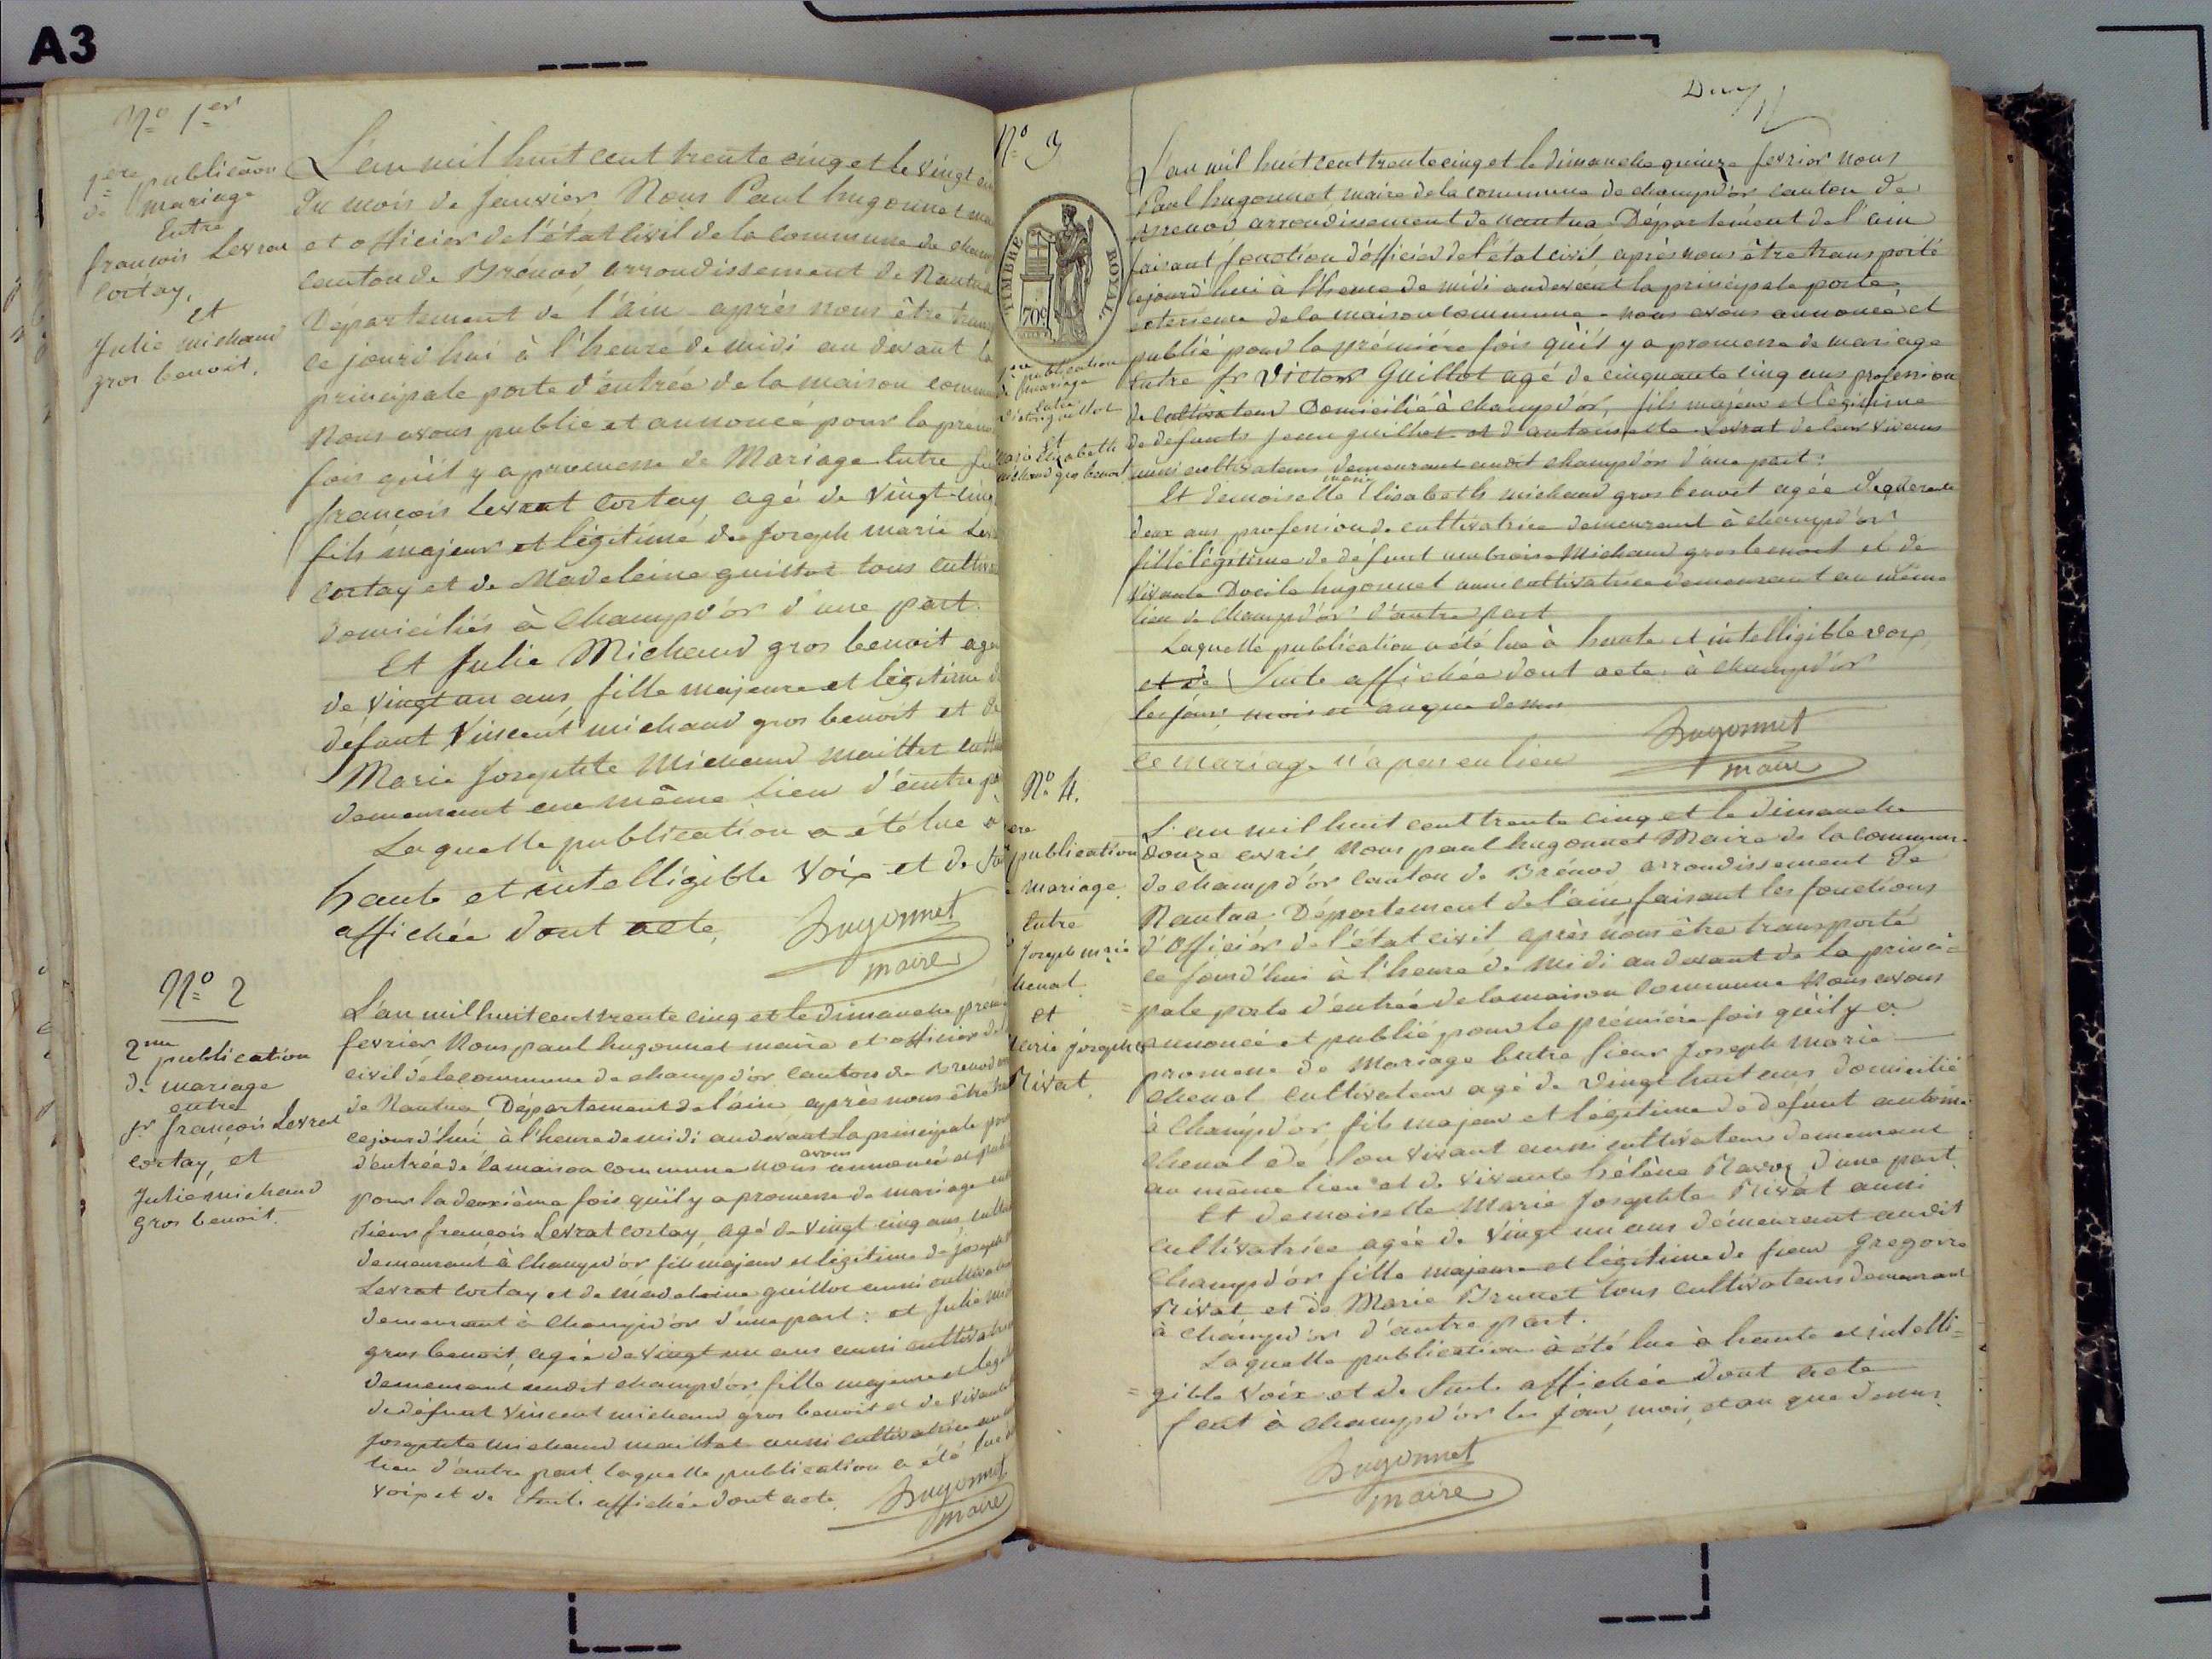 A3
N° 1er
1ere publication
de mariage
Entre
francois Levrat
Cortay,
et
Julie michaud
gros benoit.
L'an mil huit cent trente cinq et le vingt
du mois de Janvier, Nous Paul hugonnet
et officier de l'état civil de la commune de
canton de Brénod arrondissement de Nantua
Département de l'ain après nous être
ce jourd'hui à l'heure de midi au devant la
principale porte d'entrée de la maison
Nous avons publié et annoncé pour la
fois qu'il y a promesse de Mariage Entre
françois Levrat Cortay, agé de Vingt-cinq
fils majeur et légitime de Joseph marie
Cortay et de Madeleine guillot tous
domiciliés à Champd'or d'une part.
Et Julie Michaud gros benoit
de vingt un ans, fille majeure et légitime
défunt Vincent michaud gros benoit et de
Marie Josephte Michaud maillet
demeurant au même lieu d'autre
Laquelle publication a été lue à
haute et intelligible voix et de
affichée dont acte,
hugonnet
maire
N° 2
2me publication
de mariage
entre
sr françois Levrat
cortay, et
Julie michaud
gros benoit.
L'an mil huit cent trente cinq et le dimanche
fevrier Nous paul hugonnet maire et officier de
civil de la commune de champd'or canton de Brenod
de Nantua Département de l'ain après nous être
cejourd'hui à l'heure de midi au devant la principale
d'entrée de la maison commune nous avons annoncé et
pour la deuxième fois qu'il y a promesse de mariage
sieur françois Levrat cortay, agé de vingt cinq ans,
demeurant à Champd'or fils majeur et légitime de joseph
Levrat cortay et de madeleine guillot aussi
demeurant à Champd'or d'une part: et Julie
gros benoit, agée de vingt un ans aussi
demeurant audit champd'or, fille majeure et
de défunt Vincent michaud gros benoit et de
Josephte michaud maillet aussi cultivatrice
lieu d'autre part, laquelle publication a été lue
voix et de suite affichée dont acte.
hugonnet
maire
N° 3
TIMBRE ROYAL
70c
1ere publication
de mariage
Entre
Victor guillot
Et
marie Elisabeth
michaud gros benoit
L'an mil huit cent trente cinq et le dimanche quinze fevrier nous
Paul hugonnet, maire de la commune de champd'or canton de
Brenod arrondissement de Nantua Département de l'ain
faisant fonction d'officier de l'état civil, après nous être transporté
cejourd'hui à l'heure de midi au devant la principale porte
exterieure de la maison commune, nous avons annoncé et
publié pour la prémiére fois qu'il y a promesse de mariage
Entre sr Victor Guillot agé de cinquante cinq ans profession
de cultivateur Domicilié à champd'or, fils majeur et legitime
de defunts Jean guillot et d'antoinette Levrat de leur vivans
aussi cultivateurs demeurant audit champd'or d'une part:
Et demoiselle marie Elisabeth michaud gros benoit agée de quarante
deux ans profession de cultivatrice demeurant à champd'or
fille légitime de défunt ambroise Michaud gros benoit et de
vivante hugonnet aussi cultivatrice demeurant au même
lieu de champd'or d'autre part
Laquelle publication a été lue à haute et intelligible voix,
et de suite affichée dont acte à champd'or
les jour, mois et an que dessus
hugonnet
maire
ce mariage n'a pas eu lieu
N° 4.
ere
publication
mariage
Entre
Joseph marie
chenal
et
marie josephte
Rivat
L'an mil huit cent trente cinq et le dimanche
douze avril Nous paul hugonnet Maire de la commune
de champd'or Canton de Brénod arrondissement de
Nantua Département de l'ain faisant les fonctions
d'officier de l'état civil, après nous être transporté
ce jourd'hui à l'heure de midi au devant de la princi=
=pale porte d'entrée de la maison commune Nous avons
annoncé et publié pour la prémiére fois qu'il y a
promesse de Mariage Entre sieur Joseph marie
chenal cultivateur agé de vingt huit ans domicilié
à Champd'or, fils majeur et légitime de défunt antoine
chenal de son vivant aussi cultivateur demeurant
au même lieu et de vivante hélène Ravoz d'une part.
Et demoiselle Marie Josephte Rivat aussi
cultivatrice agée de vingt un ans démeurant audit
Champd'or fille majeure et légitime de sieur gregoire
Rivat et de Marie Brunet tous cultivateurs demeurant
à champd'or d'autre part.
Laquelle publication à été lue à haute et intelli=
=gible voix et de suite affichée dont acte
fait à champd'or les jour, mois, et an que dessus.
hugonnet
maire